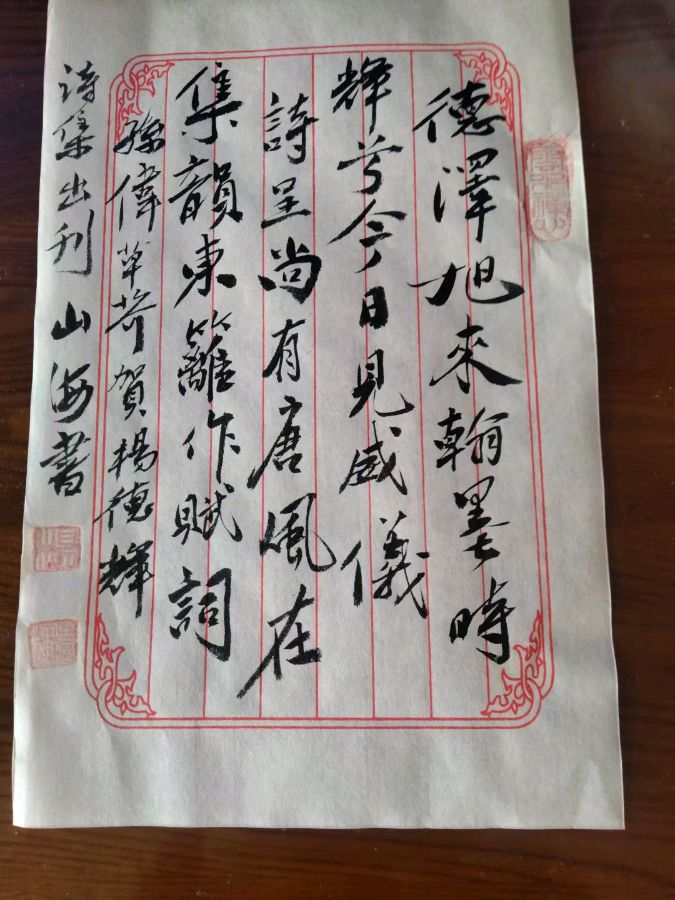 德澤旭來翰墨時
輝兮今日見威儀
詩呈尚有唐風在
集韻東籬作賦詞
孫偉萍賀楊德輝
詩集出刊 山海書